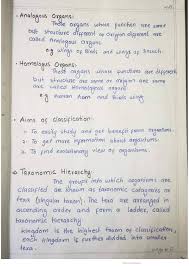 • Analogous Organs:
These organs whose function are same
but structure different or origin different are
called Analogous Organs.
eg Wings of Birds and Wings of Insect.
• Homologus Organs:
These organs whose functions are different
but structures are same or origins are same
are called Homologous organs
eg Human Arm and Birds wing
• Aims of Classification:
1. To easily study and get benefit from organisms.
2. To get more information about organisms.
3. To find evolutionary view of organisms.
Taxonomic Hierarchy:
The groups into which organisms are
classified are known as taxonomic categories or
taxa (singular taxon). The taxa are arranged in
ascending order and form a ladder, called
taxonomic hierarchy.
Kingdom is the highest taxon of classification,
each kingdom is further divided into smaller
taxa.